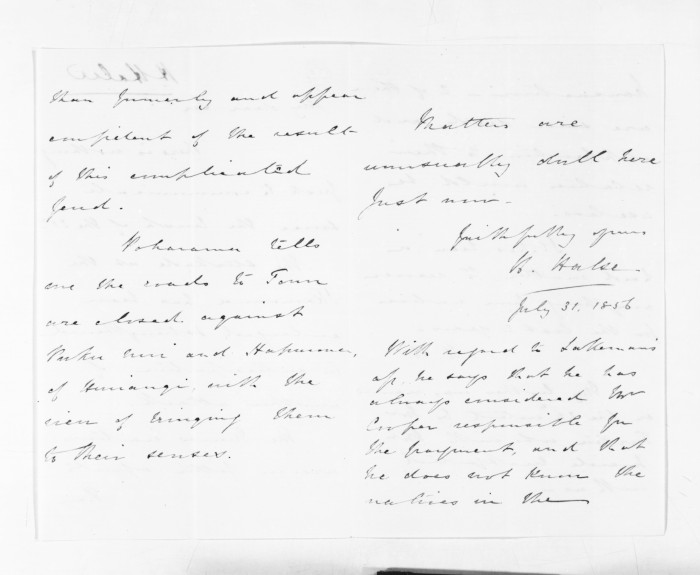 than formerly and appear
confident of the result
of this complicated
feud.
Poharama tells
me the roads to Town
are closed against
and
of Huirangi with the
view of bringing them
to their senses.
Matters are
unusually dull here
just now.
Faithfully yours
H. Halse.
July 31. 1856
With regard to
he says that he has
always considered Mr
Cooper responsible for
the payment, and that
he does not know the
natives in the
H Halse